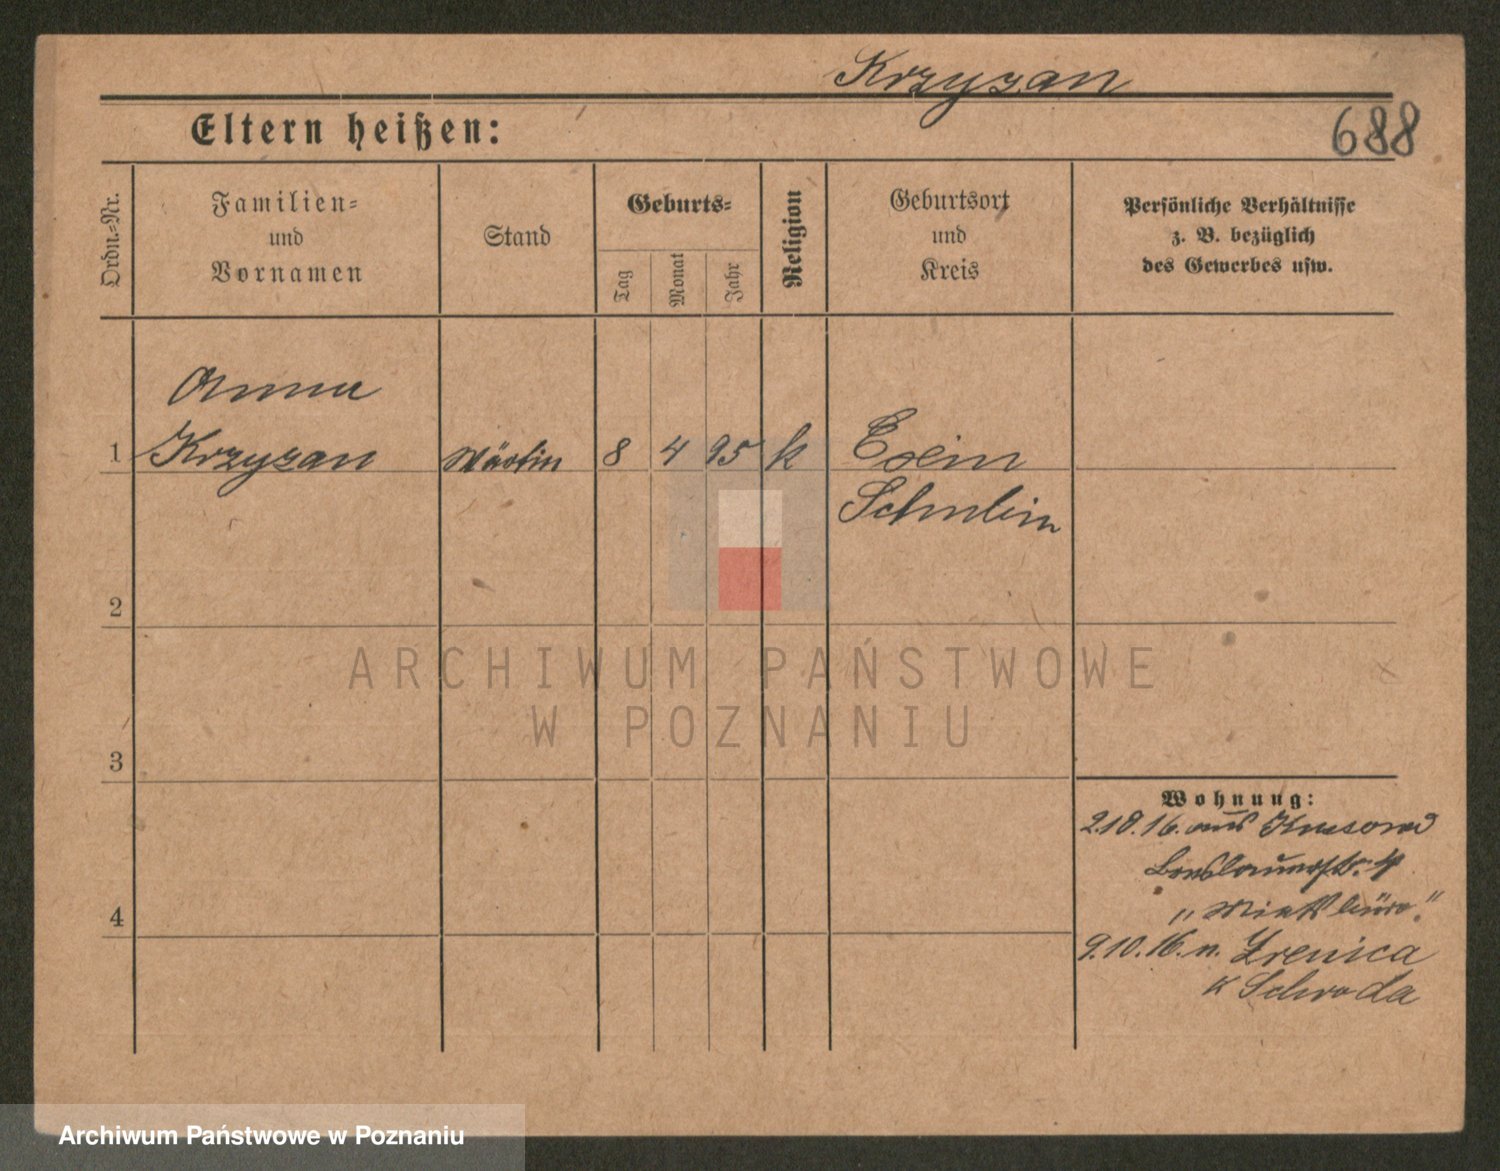 Krzyzan
Eltern heißen:
688
Ordn.-Nr.
Familien-
und
Vornamen
Stand
Geburts-
Tag
Monat
Jahr
Religion
Geburtsort
und
Kreis
Persönliche Verhältnisse
z. B. bezüglich
des Gewerbes usw.
Anna
1 Krzyzan 8 4 95 k Exin
Schubin
2
3
4
Wohnung:
2.10.16. aus
Breslauerstr. 4
9.10.16. n. Zrenica
K Schroda
ARCHIWUM PAŃSTWOWE
W POZNANIU
Archiwum Państwowe w Poznaniu